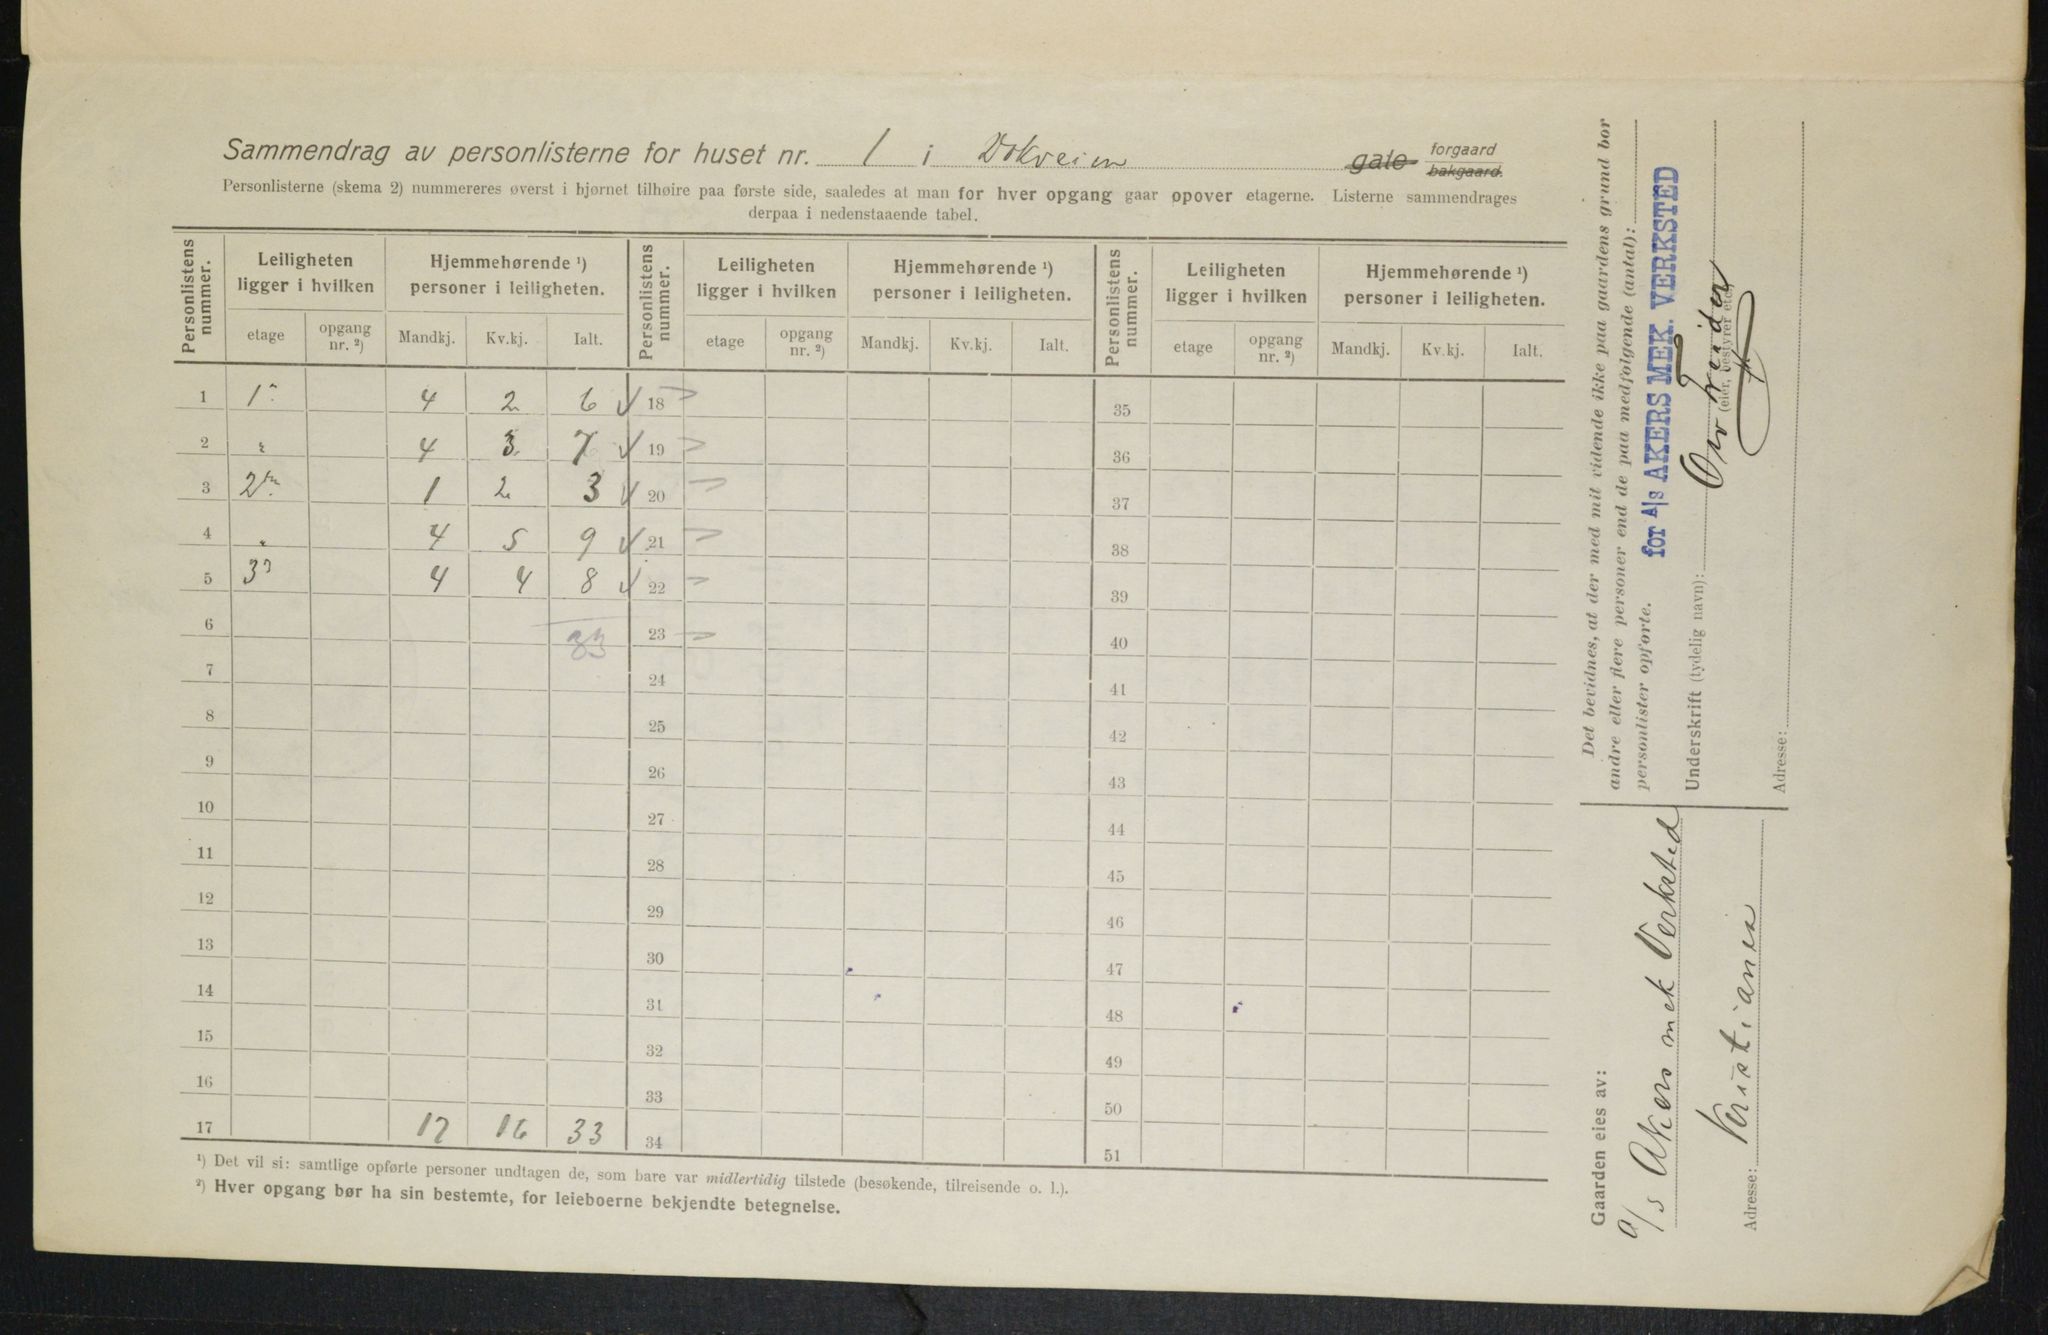 Sammendrag av personlisterne for huset nr. 1 i Dokveien gate forgaard bakgaard.
Personlisterne (skema 2) nummereres øverst i hjørnet tilhøire paa første side, saaledes at man for hver opgang gaar opover etagerne. Listerne sammendrages
derpaa i nedenstaaende tabel.
Personlistens nummer. Leiligheten ligger i hvilken Hjemmehørende ¹) personer i leiligheten. Personlistens nummer. Leiligheten ligger i hvilken Hjemmehørende ¹) personer i leiligheten. Personlistens nummer. Leiligheten ligger i hvilken Hjemmehørende ¹) personer i leiligheten.
etage opgang nr. ²) Mandkj. Kv.kj. Ialt. etage opgang nr. ²) Mandkj. Kv.kj. Ialt. etage opgang nr. ²) Mandkj. Kv.kj. Ialt.
1 1 4 2 6 18 35
2 " 4 3 7 19 36
3 2 1 2 3 20 37
4 " 4 5 9 21 38
5 3 4 4 8 22 39
6 33 23 40
7 24 41
8 25 42
9 26 43
10 27 44
11 28 45
12 29 46
13 30 47
14 31 48
15 32 49
16 33 50
17 17 16 33 34 51
¹) Det vil si: samtlige opførte personer undtagen de, som bare var midlertidig tilstede (besøkende, tilreisende o. l.).
²) Hver opgang bør ha sin bestemte, for leieboerne bekjendte betegnelse.
Det bevidnes, at der med mit vidende ikke paa gaardens grund bor
andre eller flere personer end de paa medfølgende (antal):
personlister opførte.
for A/S AKERS MEK. VERKSTED
Underskrift (tydelig navn):
(eier, bestyrer etc.)
Adresse:
Gaarden eies av:
A/S Akers mek Verksted
Adresse: Kristiania